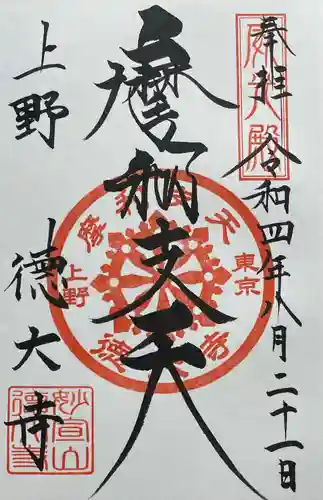 奉拝
令和四年八月二十一日
威光殿
摩利支天
摩利支天
東京
上野
徳大寺
上野
徳大寺
妙宣山
徳大寺